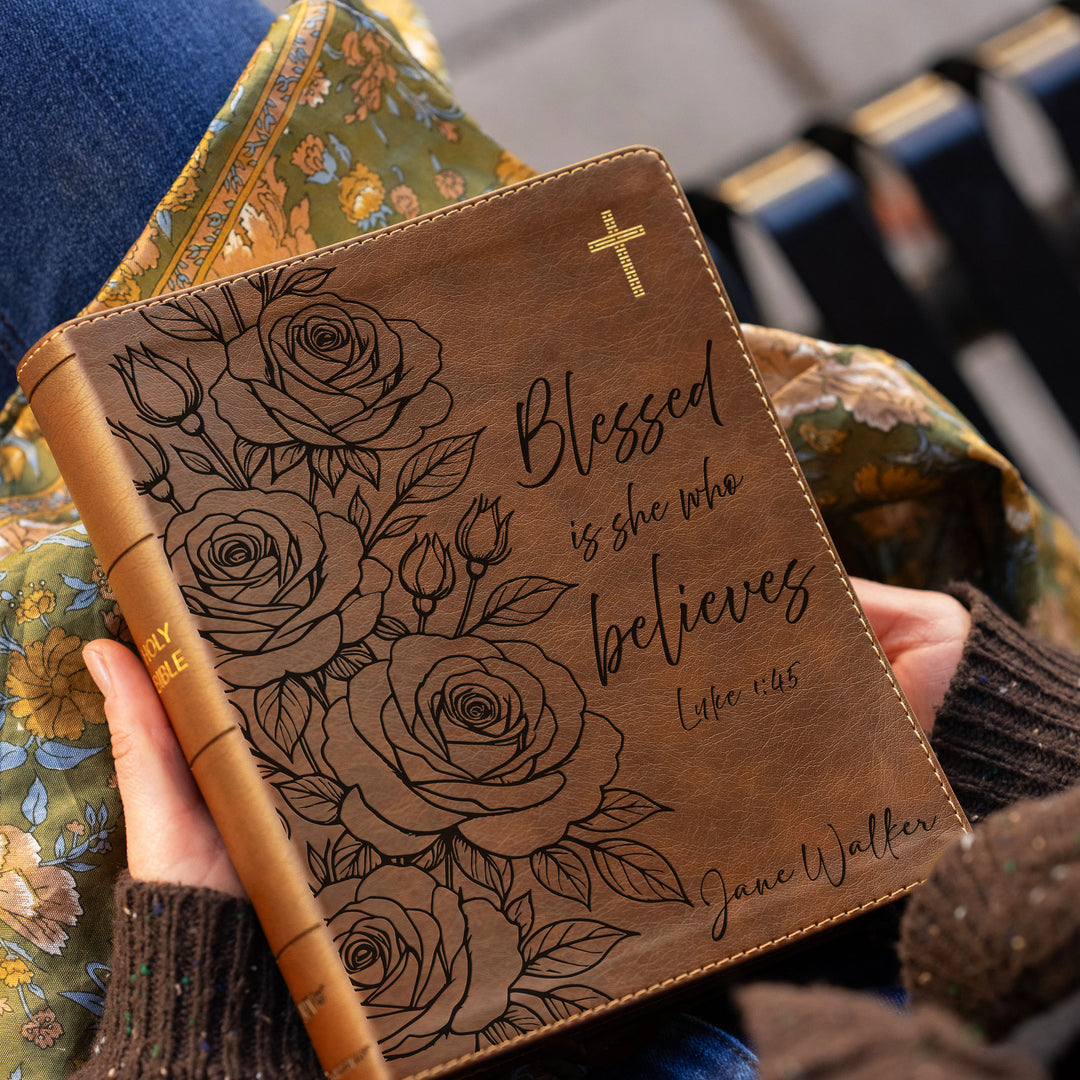 Blessed
is she who
believes
Luke 1:45
Jane Walker
HOLY
BIBLE